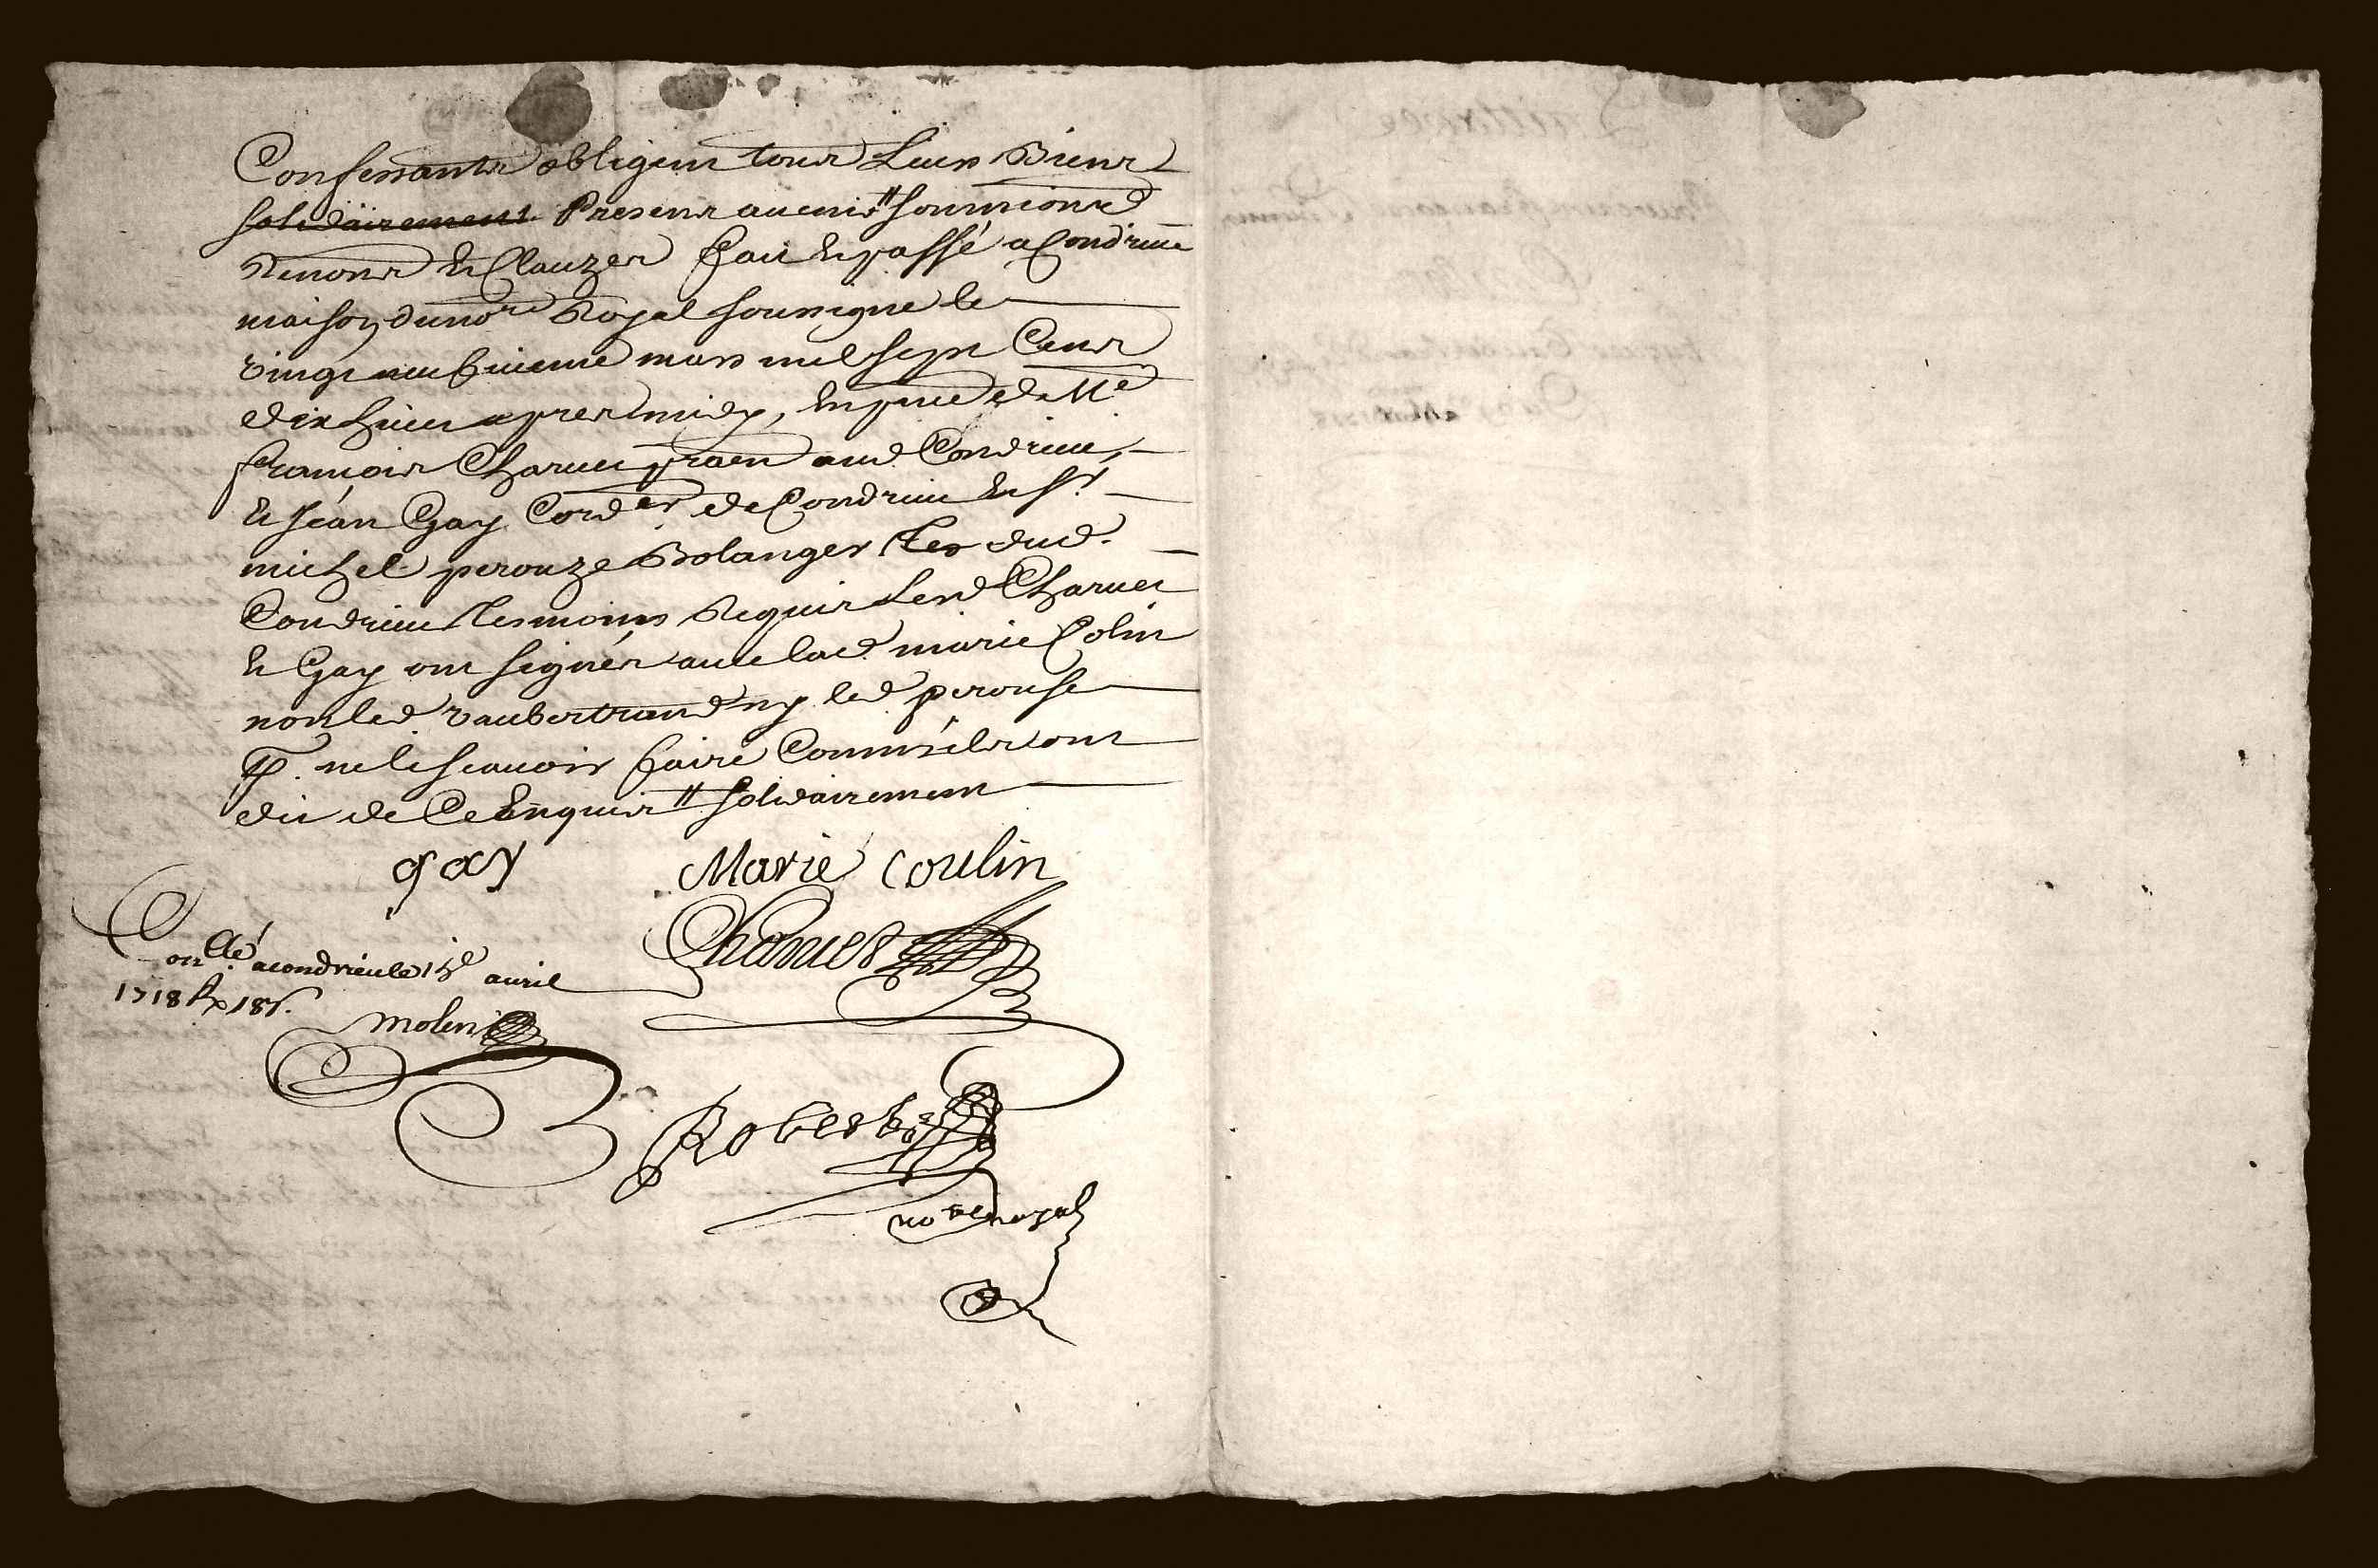 Confessants obligent tours Leurs Biens
solidairement Presens avenir " soumsions
Renons et Clauzes fait et passé a Condrieu
maison du nore Royal soussigne le
vingt neufvieme mars mil sept Cens
dix huict apres midy, en pnce de Me
françois Charvet praen aud Condrieu,
et Jéan Gay Corder de Condrieu et sr
michel perouze Bolanger Les dud.
Condrieu tesmoins Requis Lesd Charvet
et Gay ont signés avec lad. marie Colin
non led vaubertrand ny led perouse
p. ne le scavoir faire Comm'ils ont
dit de Ce Enquis " solidairement
gay Marie Coulin
Charvet
Conllé a condrieu le 1 avril
1718
molin
Robert
nore Royal